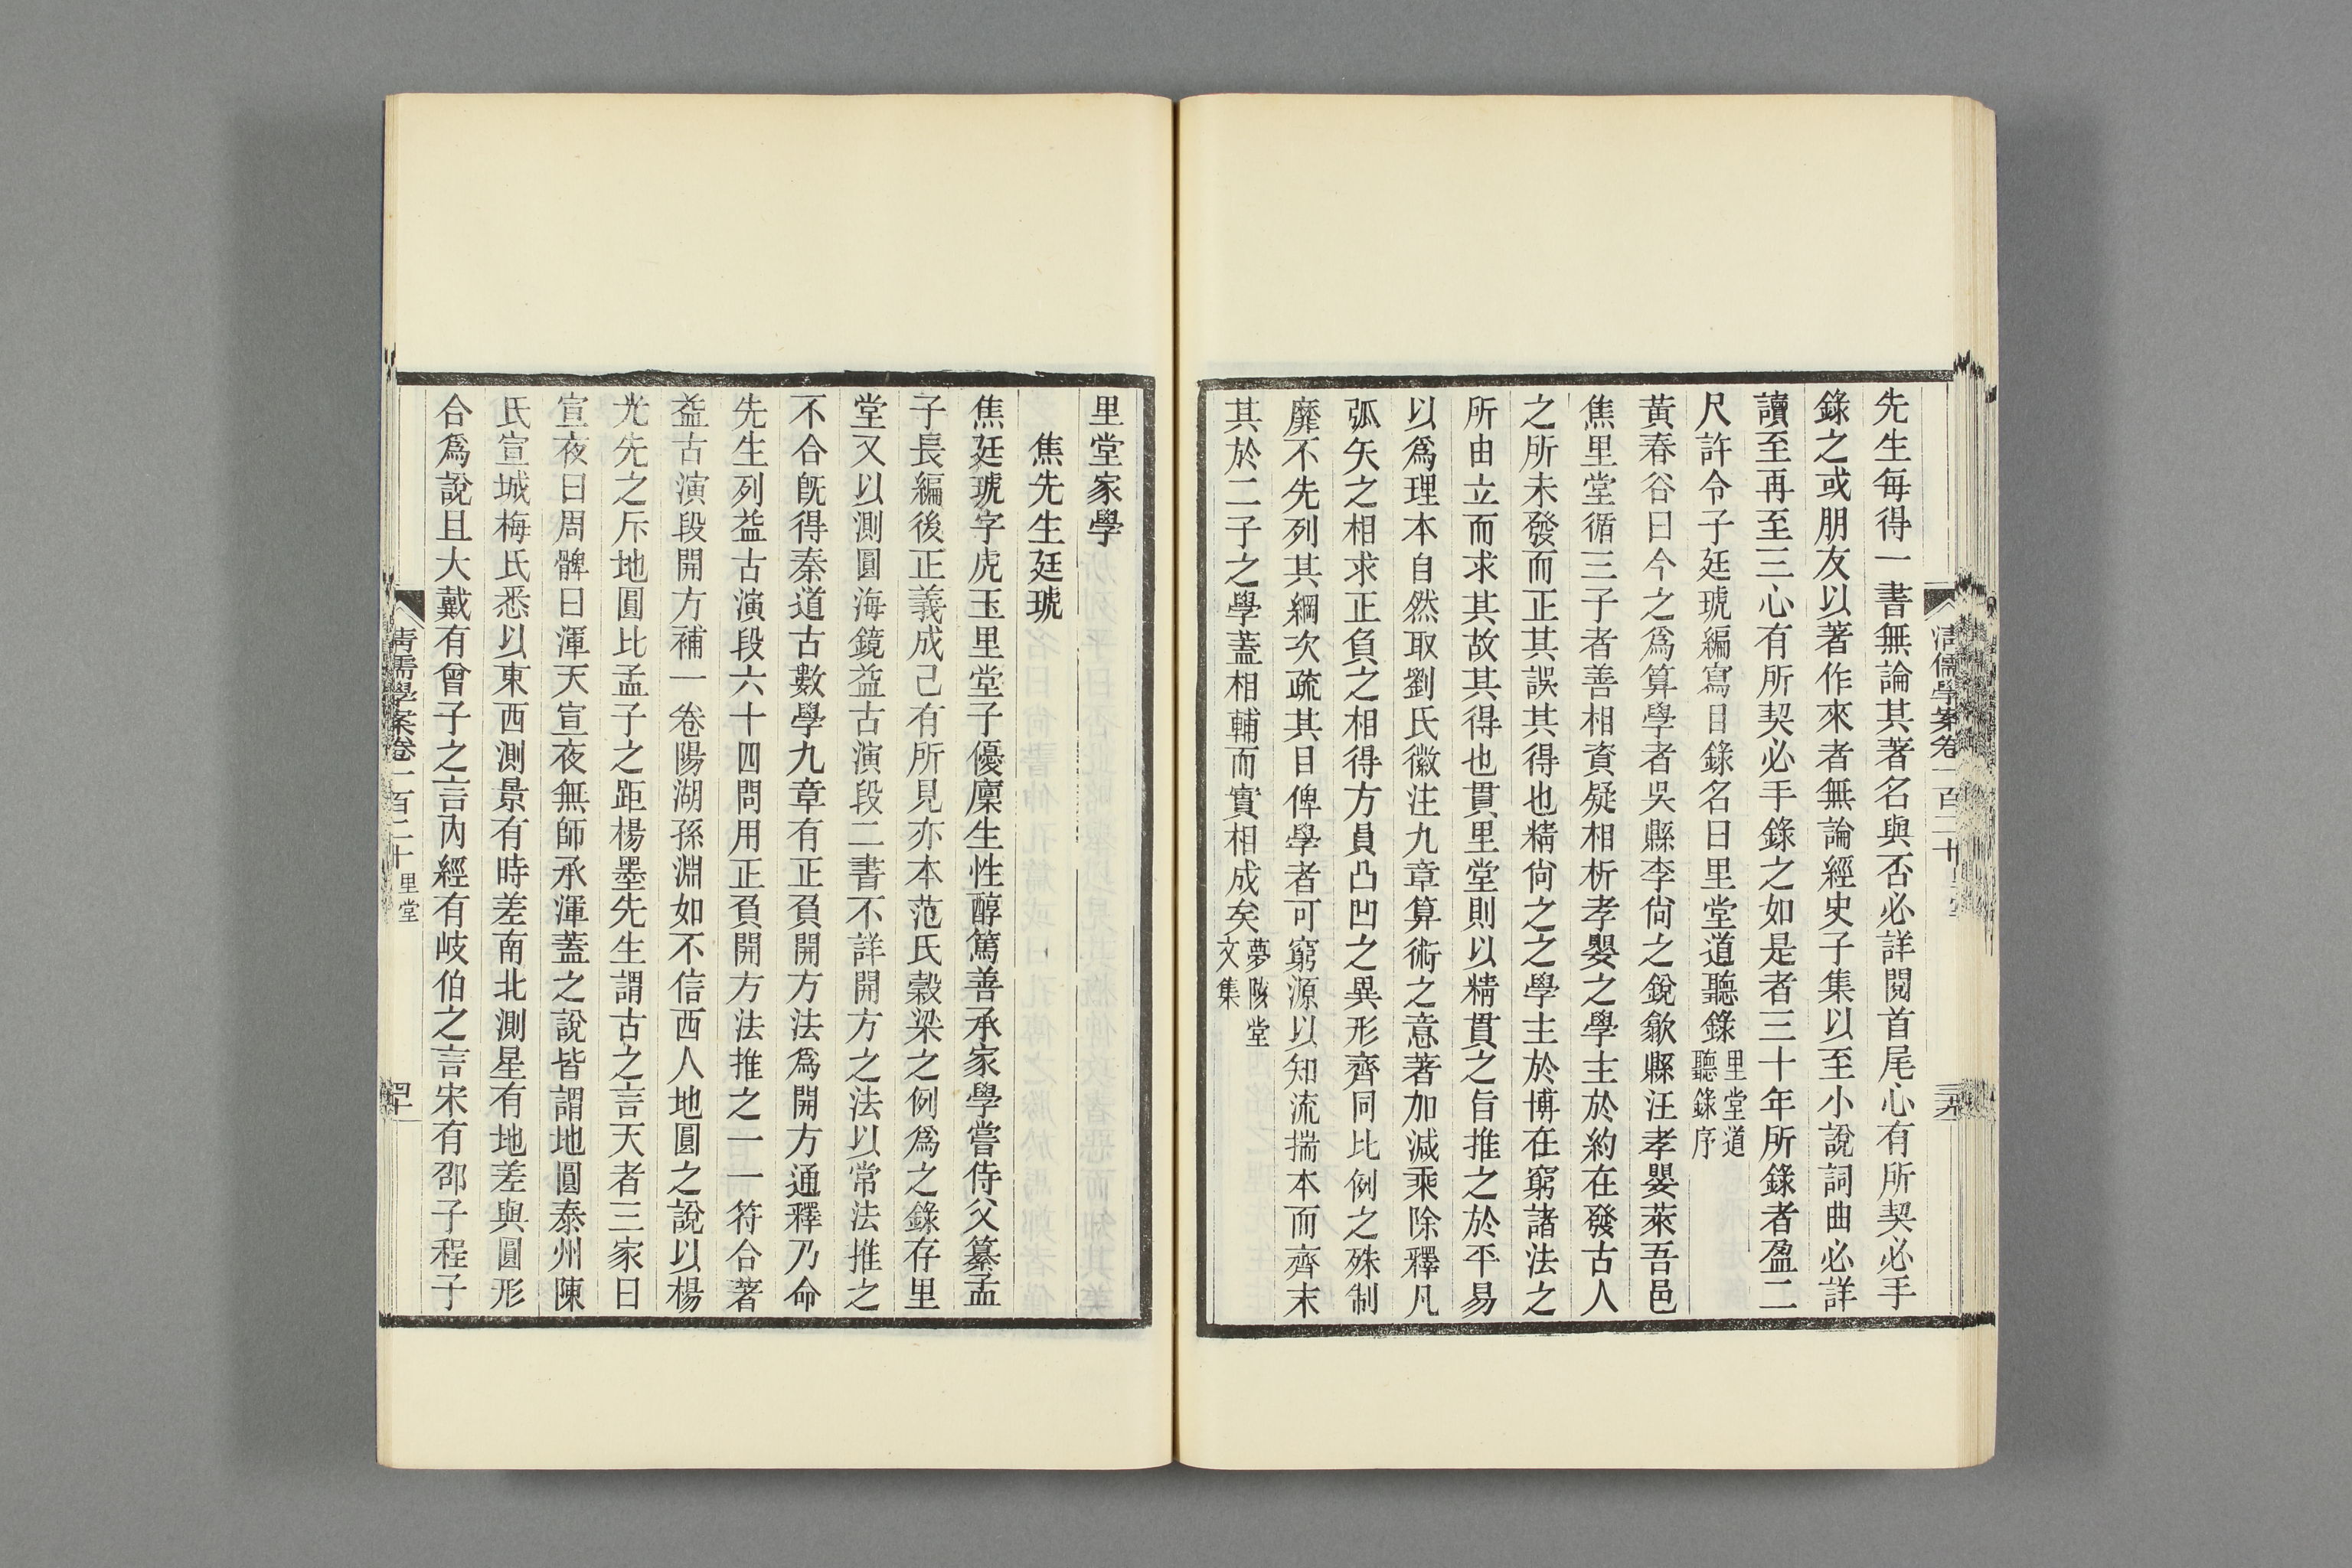 先生每得一書無論其著名與否必詳閱首尾心有所契必手
錄之或朋友以著作來者無論經史子集以至小說詞曲必詳
讀至再至三心有所契必手錄之如是者三十年所錄者盈二
尺許令子廷琥編寫目錄名曰里堂道聽錄里堂道聽錄序
黃春谷曰今之爲算學者吳縣李尙之銳歙縣汪孝嬰萊吾邑
焦里堂循三子者善相資疑相析孝嬰之學主於約在發古人
之所未發而正其誤其得也精尙之之學主於博在窮諸法之
所由立而求其故其得也貫里堂則以精貫之旨推之於平易
以爲理本自然取劉氏徽注九章算術之意著加減乘除釋凡
弧矢之相求正負之相得方員凸凹之異形齊同比例之殊制
靡不先列其綱次疏其目俾學者可窮源以知流揣本而齊末
其於二子之學蓋相輔而實相成矣夢陔堂文集
里堂家學
焦先生廷琥
焦廷琥字虎玉里堂子優廩生性醇篤善承家學嘗侍父纂孟
子長編後正義成己有所見亦本范氏穀梁之例爲之錄存里
堂又以測圓海鏡益古演段二書不詳開方之法以常法推之
不合旣得秦道古數學九章有正負開方法爲開方通釋乃命
先生列益古演段六十四問用正負開方法推之一一符合著
益古演段開方補一卷陽湖孫淵如不信西人地圓之說以楊
光先之斥地圓比孟子之距楊墨先生謂古之言天者三家曰
宣夜曰周髀曰渾天宣夜無師承渾蓋之說皆謂地圓泰州陳
氏宣城梅氏悉以東西測景有時差南北測星有地差與圓形
合爲說且大戴有曾子之言內經有岐伯之言宋有邵子程子
清儒學案卷一百二十 里堂